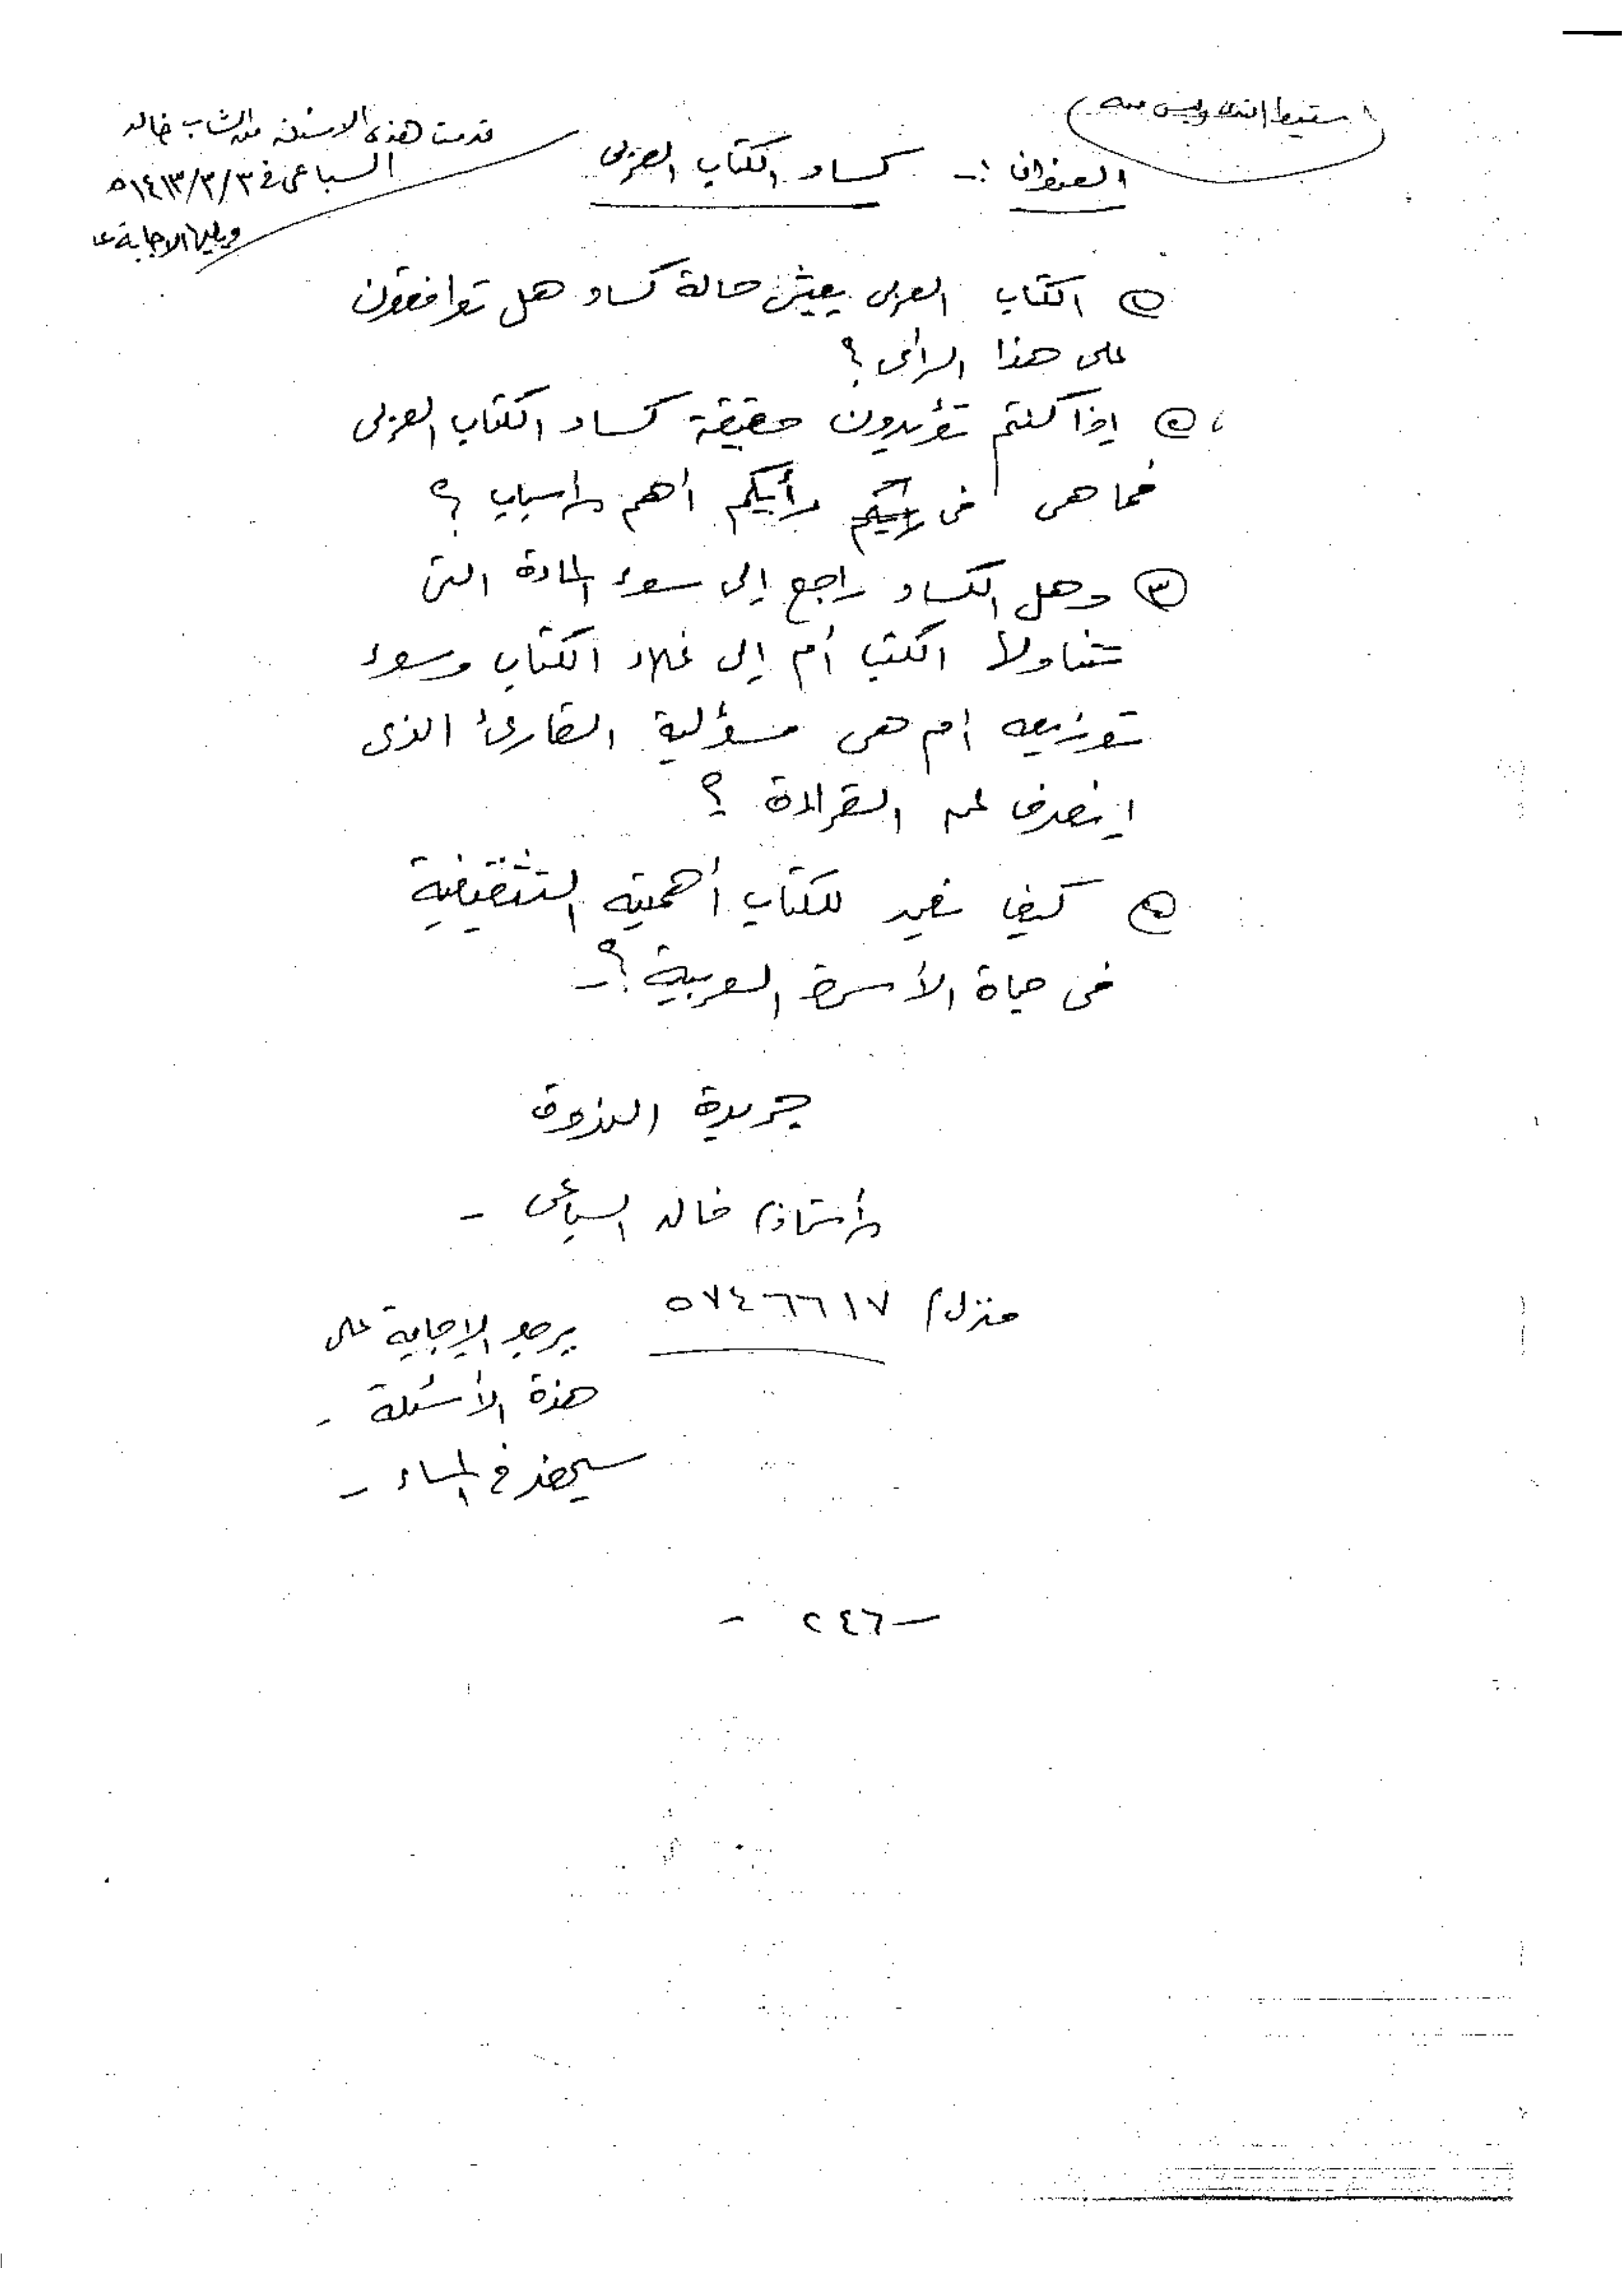 قدمت هذه الاسئلة من الشاب خالد
السباعي في ١٤١٣/٣/٣هـ
ويليها الاجابة
العنوان :- كساد الكتاب العربى
① الكتاب العربى يعيش حالة كساد هل توافقون
على هذا الرأى ؟
② إذا كنتم تؤيدون حقيقة كساد الكتاب العربى
فما هى فى رأيكم أهم الأسباب ؟
③ وهل الكساد راجع إلى سوء المادة التى
تتناولها الكتب أم إلى غلاء الكتاب وسوء
توزيعه أم هى مسؤلية القارئ الذى
انصرف عن القراءة ؟
⑤ كيف نعيد للكتاب أهميته التثقيفية
فى حياة الأسرة العربية ؟-
جريدة الندوة
الأستاذ/ خالد السباعى -
منزل/ ٥٧٤٦٦١٧
يرجو الإجابة على
هذة الأسئلة -
سيحضر في المساء -
- ٢٤٦ -